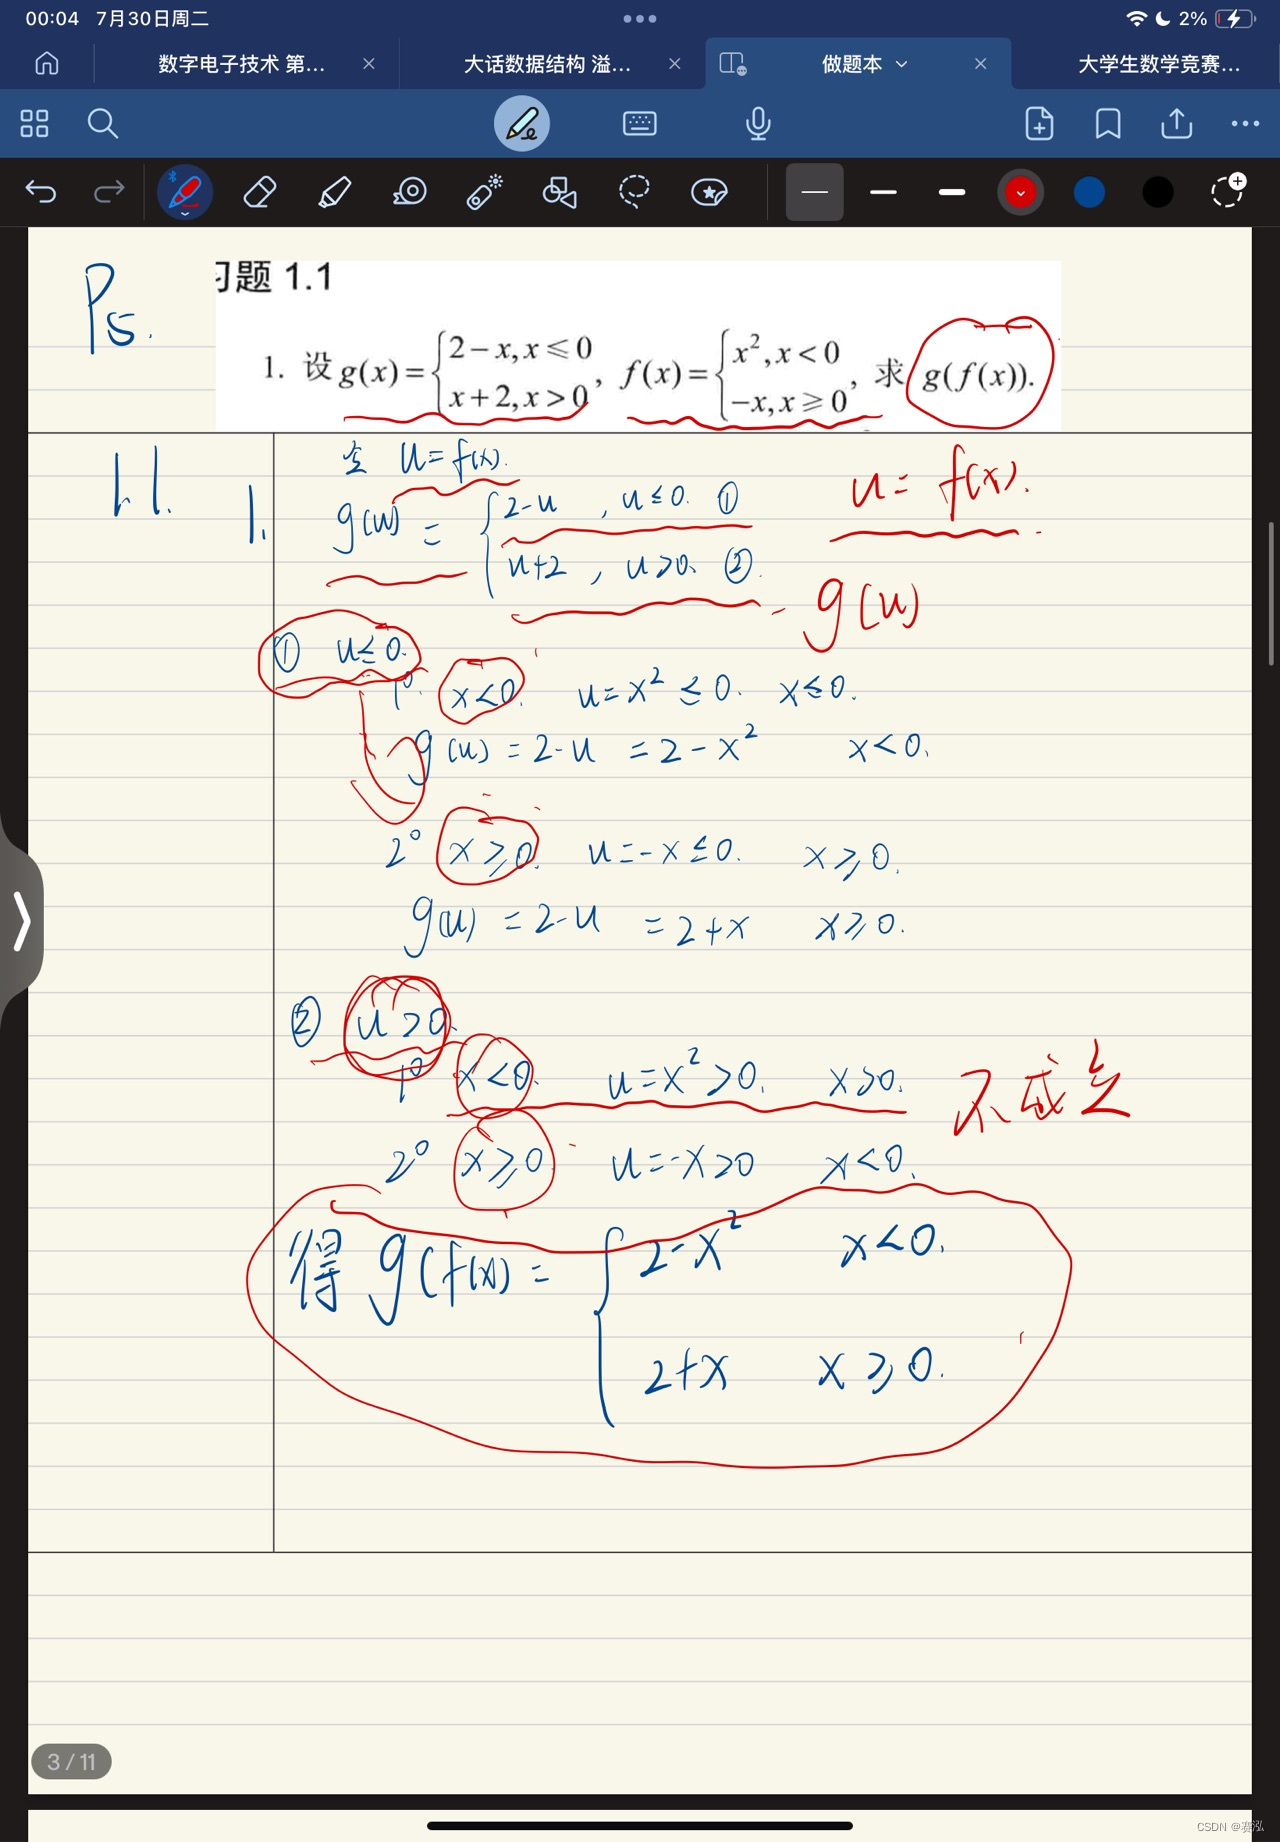 00:04 7月30日周二
2%
数字电子技术 第...
大话数据结构 溢...
做题本
大学生数学竞赛...
P5.
习题 1.1
1. 设 g(x)={2-x, x≤0
x+2, x>0, f(x)={x², x<0
-x, x≥0, 求 g(f(x)).
1.1.
1. 令 u=f(x).
u=f(x).
g(u) = {2-u , u≤0. ①
u+2 , u>0. ②.
g(u)
① u≤0.
1° x<0. u=x²≤0. x≤0.
g(u)=2-u =2-x² x<0.
2° x≥0. u=-x≤0. x≥0.
g(u) =2-u =2+x x≥0.
② u>0.
1° x<0. u=x²>0. x>0. 不成立
2° x≥0 u=-x>0 x<0.
得 g(f(x)= {2-x² x<0.
2+x x≥0.
3/11
CSDN @赛泓